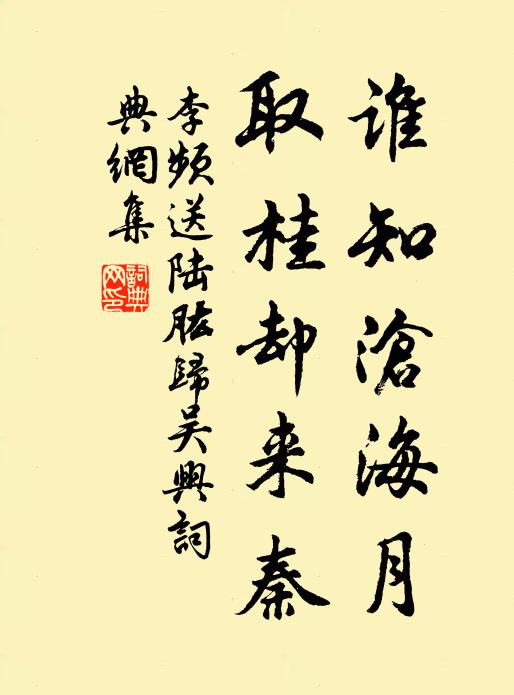 谁知滄海月
取桂却来秦
李频送陆肱歸吴興詞
典網集
詞典网印